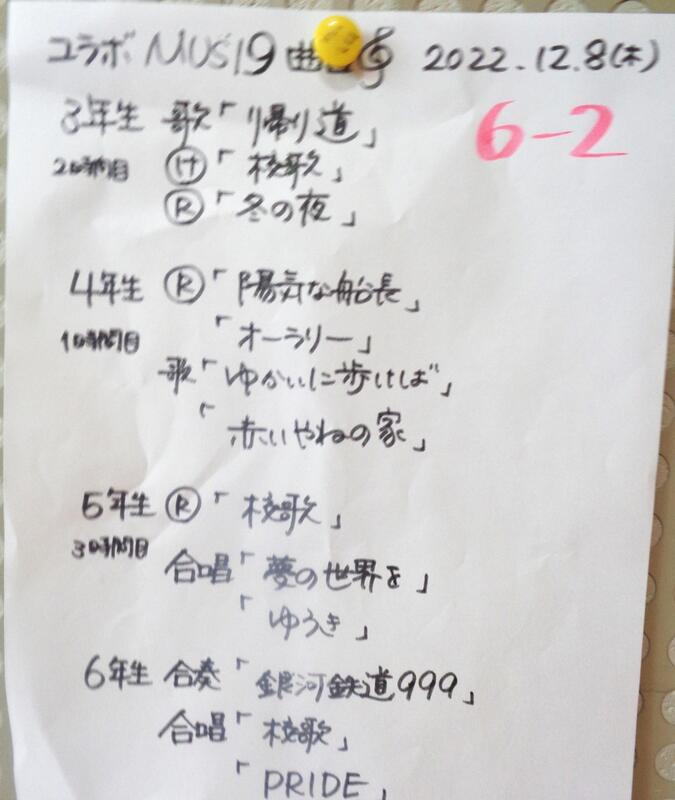 コラボMUS19曲 2022.12.8(木)
6-2
3年生 歌「帰り道」
2時間目 「校歌」
Ⓡ「冬の夜」
4年生 Ⓡ「陽気な船長」
「オーラリー」
1時間目
歌「ゆかいに歩けば」
「赤いやねの家」
5年生 Ⓡ「校歌」
3時間目
合唱「夢の世界を」
「ゆうき」
6年生 合奏「銀河鉄道999」
合唱「校歌」
「PRIDE」